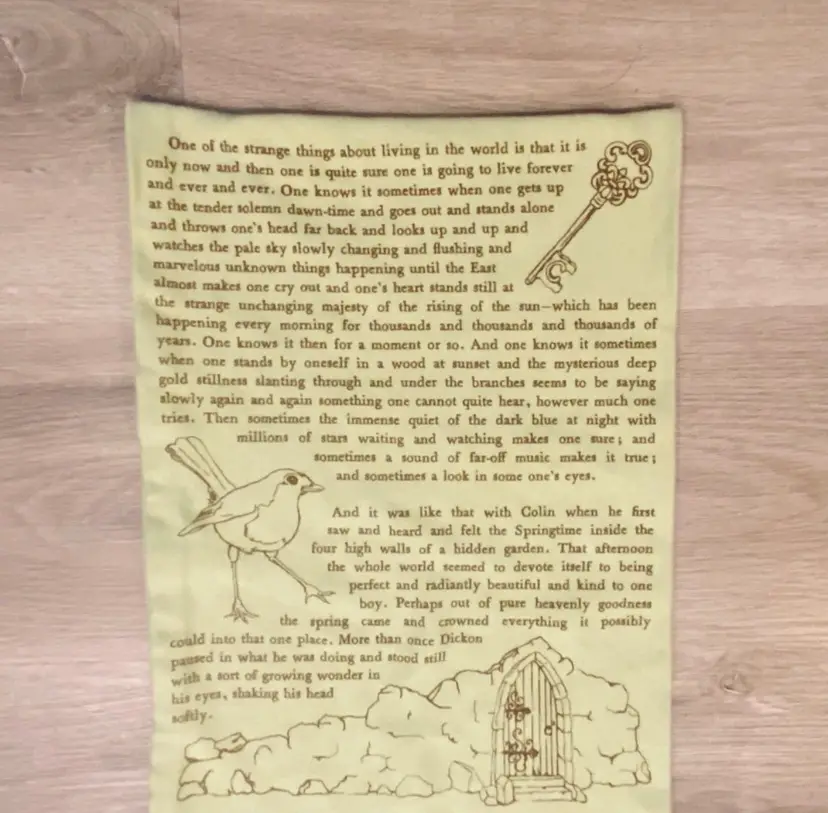 One of the strange things about living in the world is that it is
only now and then one is quite sure one is going to live forever
and ever and ever. One knows it sometimes when one gets up
at the tender solemn dawn-time and goes out and stands alone
and throws one's head far back and looks up and up and
watches the pale sky slowly changing and flushing and
marvelous unknown things happening until the East
almost makes one cry out and one's heart stands still at
the strange unchanging majesty of the rising of the sun—which has been
happening every morning for thousands and thousands and thousands of
years. One knows it then for a moment or so. And one knows it sometimes
when one stands by oneself in a wood at sunset and the mysterious deep
gold stillness slanting through and under the branches seems to be saying
slowly again and again something one cannot quite hear, however much one
tries. Then sometimes the immense quiet of the dark blue at night with
millions of stars waiting and watching makes one sure; and
sometimes a sound of far-off music makes it true;
and sometimes a look in some one's eyes.
And it was like that with Colin when he first
saw and heard and felt the Springtime inside the
four high walls of a hidden garden. That afternoon
the whole world seemed to devote itself to being
perfect and radiantly beautiful and kind to one
boy. Perhaps out of pure heavenly goodness
the spring came and crowned everything it possibly
could into that one place. More than once Dickon
paused in what he was doing and stood still
with a sort of growing wonder in
his eyes, shaking his head
softly.